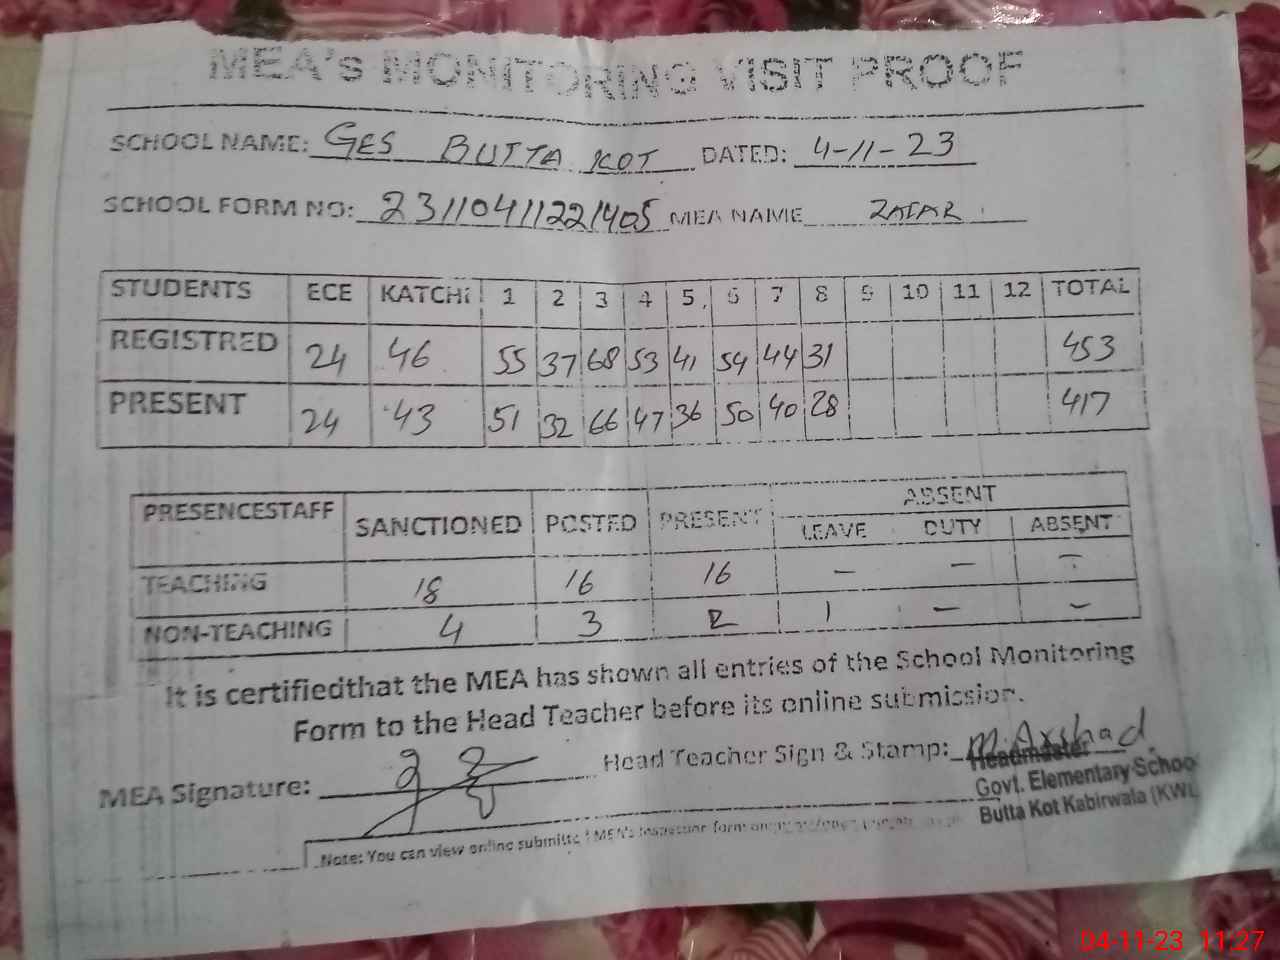 MEA's MONITORING VISIT PROOF
SCHOOL NAME: GES BUTTA KOT DATED: 4-11-23
SCHOOL FORM NO: 23110411221405 MEA NAME ZAFAR
STUDENTS ECE KATCHi 1 2 3 4 5 6 7 8 9 10 11 12 TOTAL
REGISTRED 24 46 55 37 68 53 41 54 44 31 453
PRESENT 24 43 51 32 66 47 36 50 40 28 417
ABSENT
PRESENCESTAFF SANCTIONED POSTED PRESENT LEAVE DUTY ABSENT
TEACHING 18 16 16 – – –
NON-TEACHING 4 3 2 1 – –
It is certifiedthat the MEA has shown all entries of the School Monitoring
Form to the Head Teacher before its online submission.
MEA Signature: Head Teacher Sign & Stamp: M. Arshad
Headmaster
Govt. Elementary School
Butta Kot Kabirwala (KWL
Note: You can view online submitted MEA's Inspection form on
04-11-23 11:27